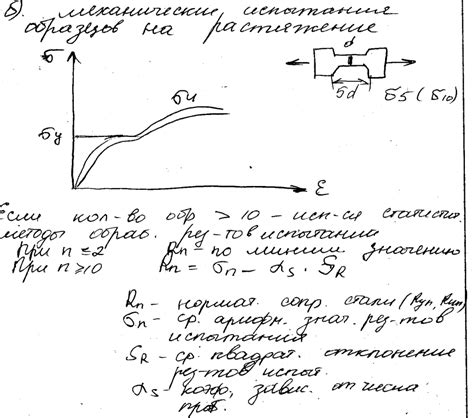 б). механические испытания
образцов на растяжение
σ
d
σu
σy
5d
δ5 (δ10)
ε
Если кол-во обр > 10 – исп-ся статистич.
методы обраб. рез-тов испытаний
При n ≤ 2 Rn – по миним. значению
При n ≥ 10 Rn = σn – αs · SR
Rn – нормат. сопр. стали (Ryn, Run)
σn – ср. арифм. знач. рез-тов
испытания
SR – ср. квадрат. отклонение
рез-тов испыт.
αs – коэф, завис. от числа
проб.